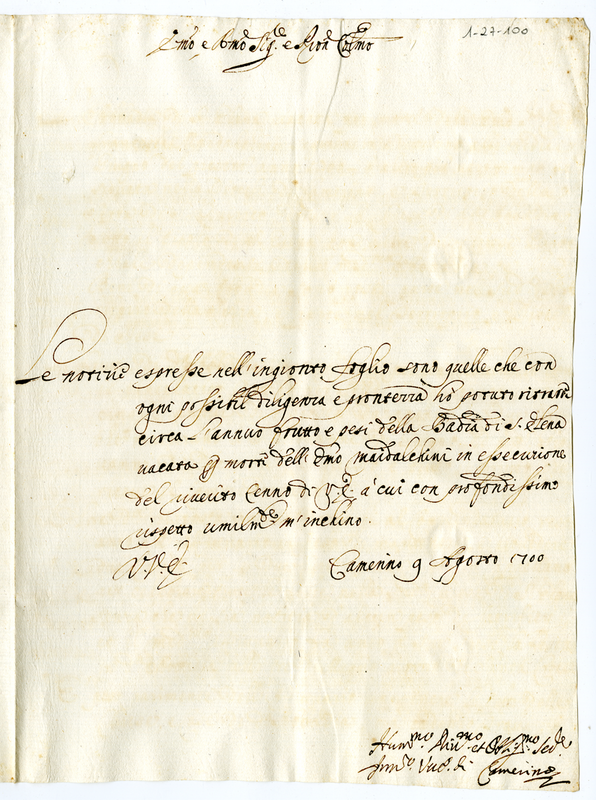 1-27-100
Emo e Rmo Sig.re e Pron Colmo
Le notitie espresse nell'ingionto foglio sono quelle che con
ogni possibil diligenza e prontezza ho potuto ritrarre
circa l'annuo frutto e pesi della Badia di S. Elena
vacata p morte dell'Emo Maidalchini in essecuzione
del riverito Cenno di V.E. à cui con profondissimo
rispetto umilmte m'inchino.
V.V.E.
Camerino 9 Agosto 1700
Hummo Divmo et Obligmo Sedre
Vco. di Camerino